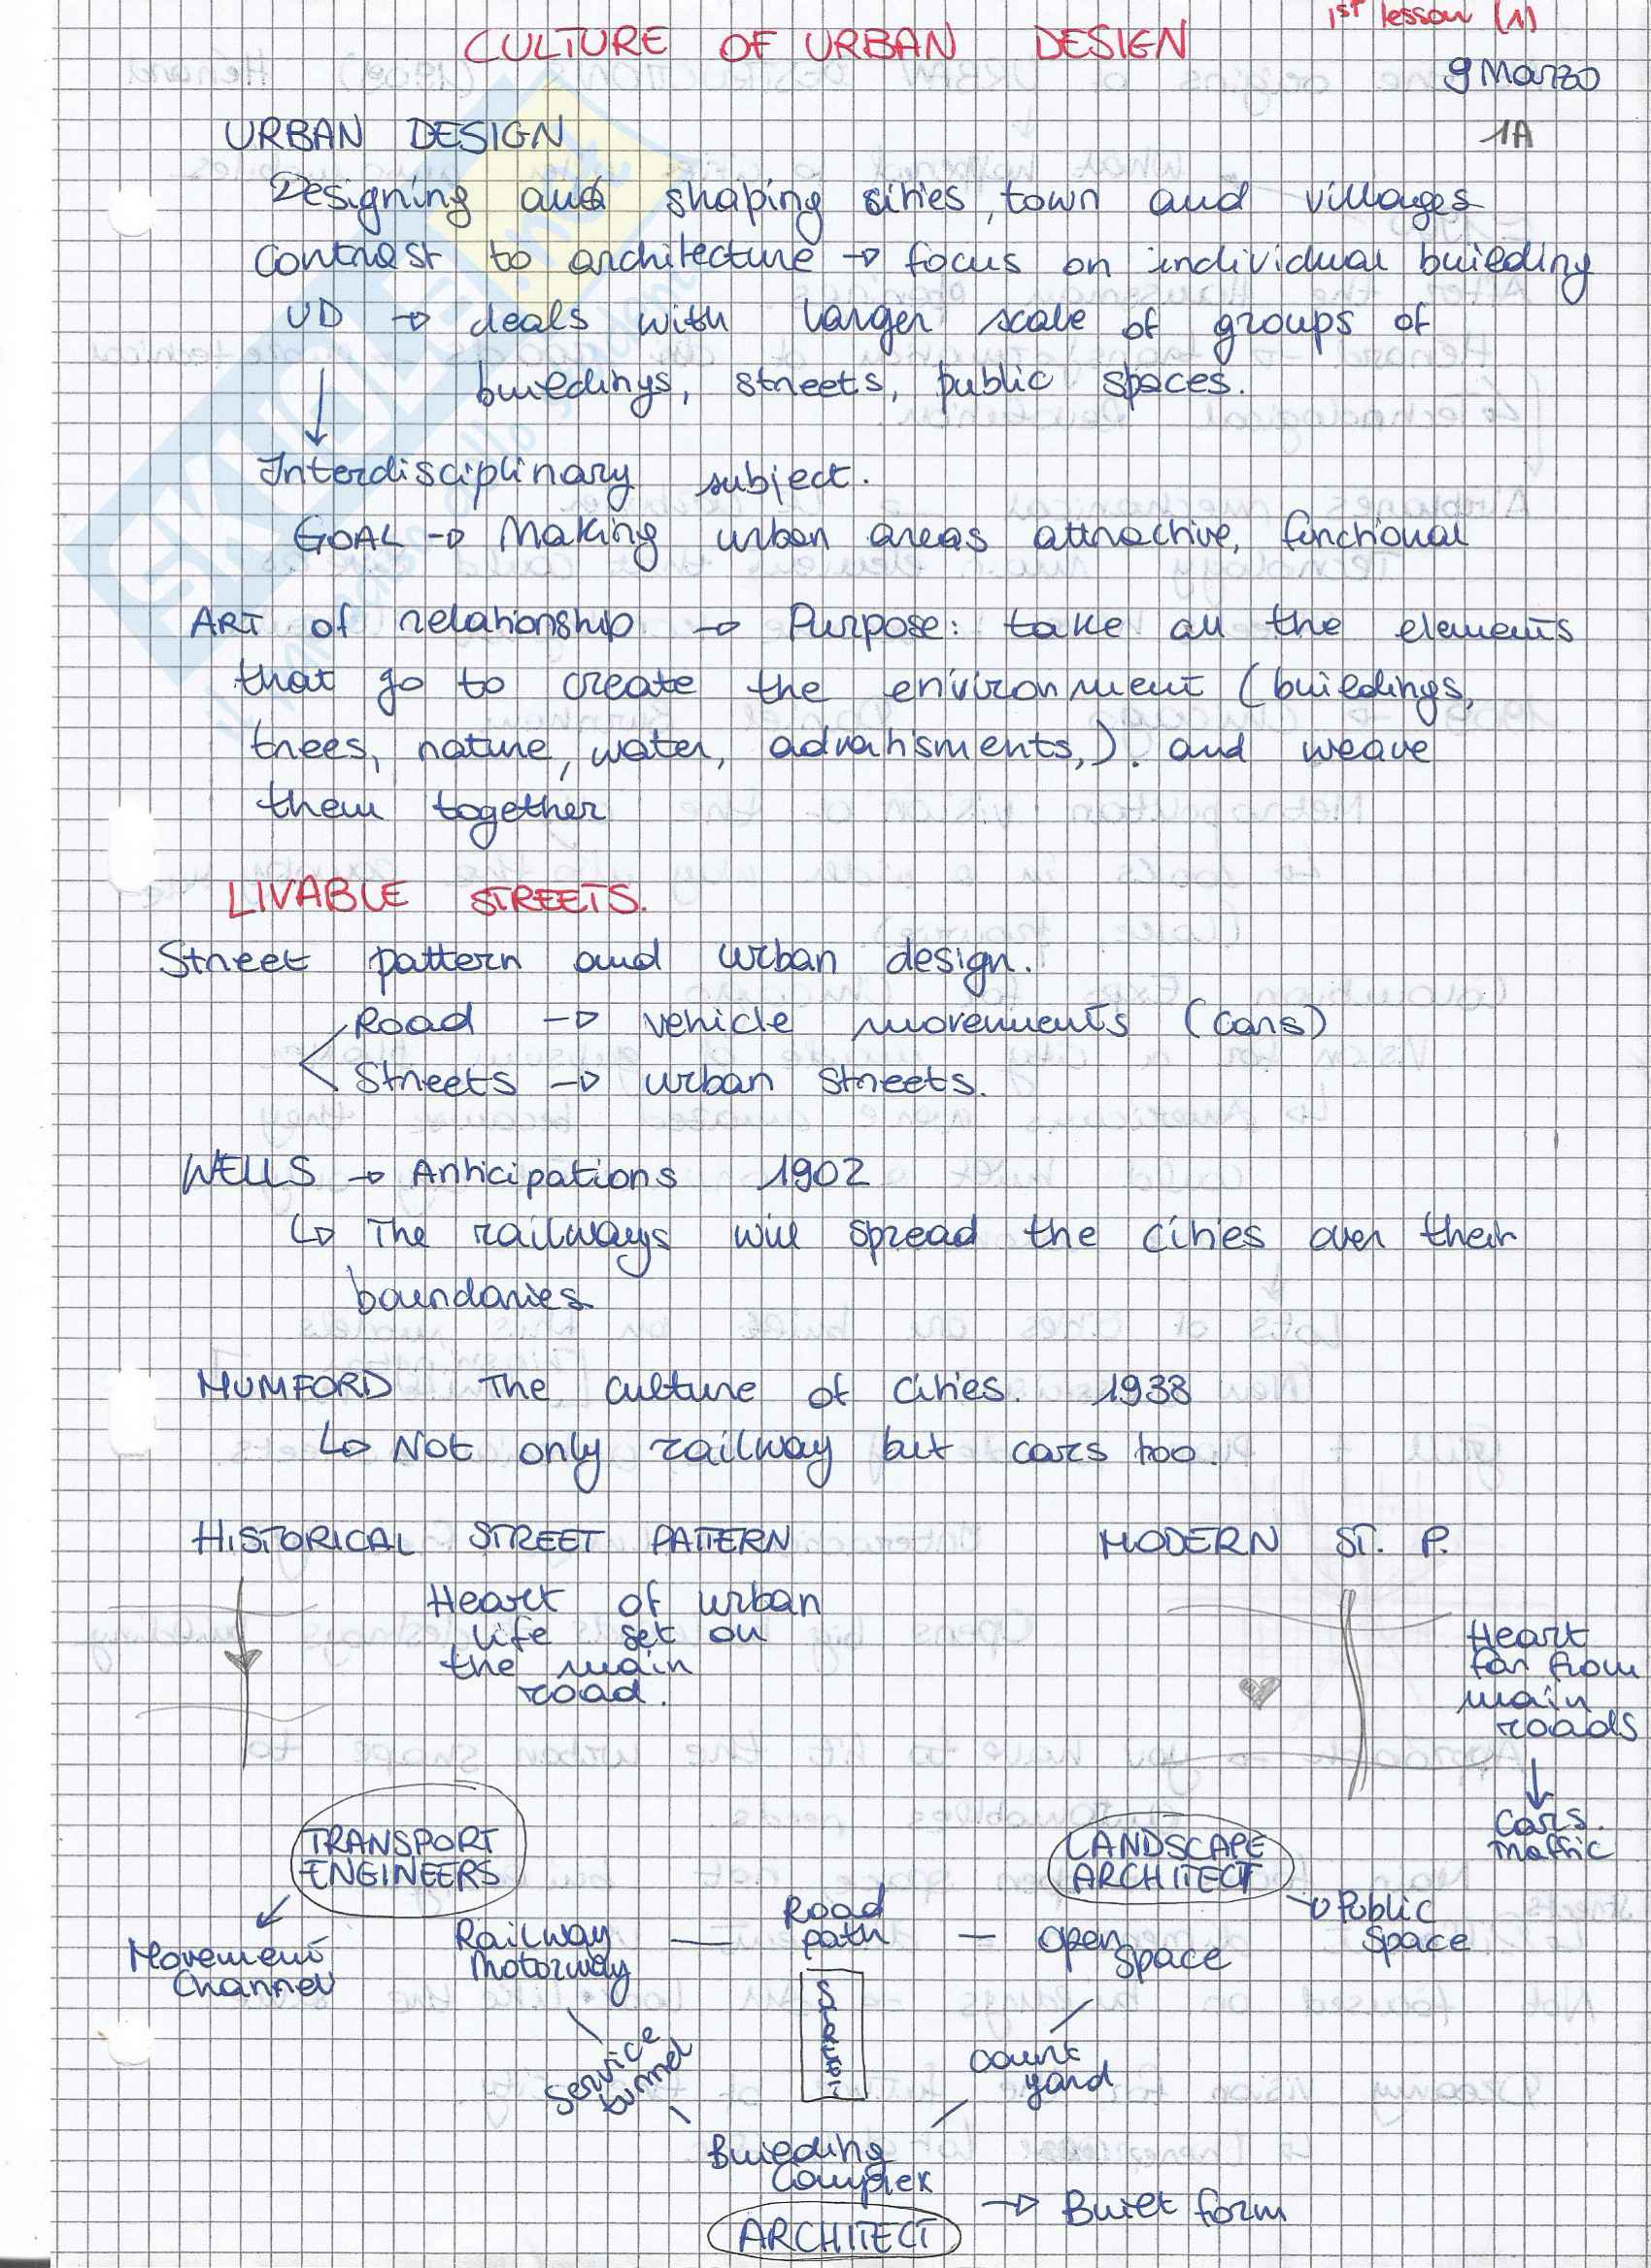 1st lesson (1)
CULTURE OF URBAN DESIGN
9 Marzo
1A
URBAN DESIGN
Designing and shaping cities, town and villages
Contrast to architecture → focus on individual building
UD → deals with larger scale of groups of
buildings, streets, public spaces.
Interdisciplinary subject.
GOAL → Making urban areas attractive, functional
ART of relationship → Purpose: take all the elements
that go to create the environment (buildings,
trees, nature, water, advahisments,). and weave
them together
LIVABLE STREETS.
Street pattern and urban design.
Road → vehicle movements (cars)
Streets → urban streets.
WELLS → Anticipations 1902
↳ The railways will spread the cities over their
boundaries
MUMFORD The culture of cities. 1938
↳ Not only railway but cars too.
HISTORICAL STREET PATTERN
MODERN ST. P.
Heart of urban
life set on
the main
road.
Heart
far from
main
roads
↓
Cars.
traffic
TRANSPORT
ENGINEERS
LANDSCAPE
ARCHITECT
Movement
Channel
Railway
Motorway
Road
path
open
space
Public
Space
Service
tunnel
Court
yard
Building
Complex
ARCHITECT
→ Built form